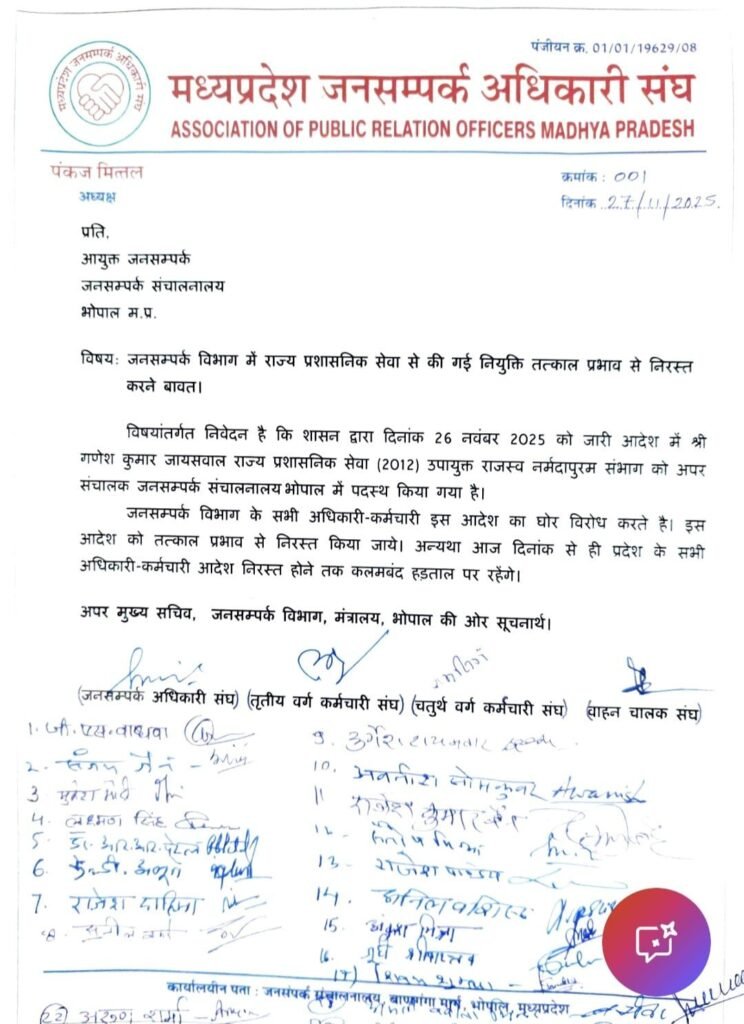 पंजीयन क्र. 01/01/19629/08
मध्यप्रदेश जनसम्पर्क अधिकारी संघ
मध्यप्रदेश जनसम्पर्क अधिकारी संघ
ASSOCIATION OF PUBLIC RELATION OFFICERS MADHYA PRADESH
पंकज मित्तल
अध्यक्ष
क्रमांक : 001
दिनांक 27/11/2025.
प्रति,
आयुक्त जनसम्पर्क
जनसम्पर्क संचालनालय
भोपाल म.प्र.
विषय: जनसम्पर्क विभाग में राज्य प्रशासनिक सेवा से की गई नियुक्ति तत्काल प्रभाव से निरस्त
करने बावत।
विषयांतर्गत निवेदन है कि शासन द्वारा दिनांक 26 नवंबर 2025 को जारी आदेश में श्री
गणेश कुमार जायसवाल राज्य प्रशासनिक सेवा (2012) उपायुक्त राजस्व नर्मदापुरम संभाग को अपर
संचालक जनसम्पर्क संचालनालय भोपाल में पदस्थ किया गया है।
जनसम्पर्क विभाग के सभी अधिकारी-कर्मचारी इस आदेश का घोर विरोध करते है। इस
आदेश को तत्काल प्रभाव से निरस्त किया जाये। अन्यथा आज दिनांक से ही प्रदेश के सभी
अधिकारी-कर्मचारी आदेश निरस्त होने तक कलमबंद हड़ताल पर रहेंगे।
अपर मुख्य सचिव, जनसम्पर्क विभाग, मंत्रालय, भोपाल की ओर सूचनार्थ।
(जनसम्पर्क अधिकारी संघ) (तृतीय वर्ग कर्मचारी संघ) (चतुर्थ वर्ग कर्मचारी संघ) (वाहन चालक संघ)
1. जी. एस. वाधवा
2. संजय जैन
3
4. लक्ष्मण सिंह
5. डॉ. आर. आर. पटेल
6.
7. राजेश दाहिमा
8.
9.
10. अवनीश सोमकुवर
11 राजेश
12. संतोष मिश्रा
13. राजेश पाण्डेय
14. अनिल वशिष्ठ
15. अंकुश मिश्रा
16.
17)
कार्यालयीन पता : जनसंपर्क संचालनालय, बाणगंगा मार्ग, भोपाल, मध्यप्रदेश
22) अरुण शर्मा